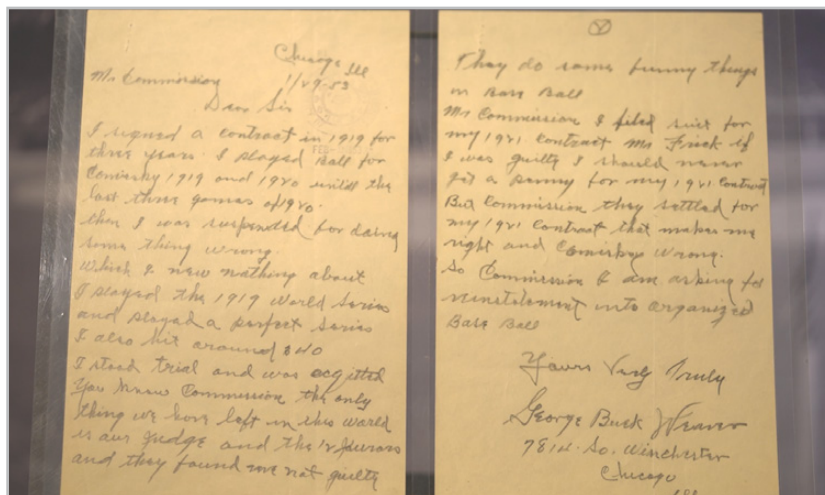 Chicago Ill
Mr Commission 1/29-53
Dear Sir
I signed a contract in 1919 for
three years I played Ball for
Comisky 1919 and 1920 untill the
last three games of 1920.
then I was suspended for doing
some thing wrong.
Which I new nothing about
I played the 1919 World Series
and played a perfect series
I also hit around 340
I stood trial and was acqitted
You know Commission the only
thing we have left in this world
is our judge and the 12 jurors
and they found me not guilty
They do some funny things
in Base Ball
Mr Commission I filed suit for
my 1921 contract Mr Frick if
I was guilty I should never
get a penny for my 1921 contract
But Commission they settled for
my 1921 contract that makes me
right and Comiskey wrong.
So Commission I am asking for
reinstatement into organized
Base Ball
Yours Very Truly
George Buck Weaver
7814. So. Winchester
Chicago
Ill